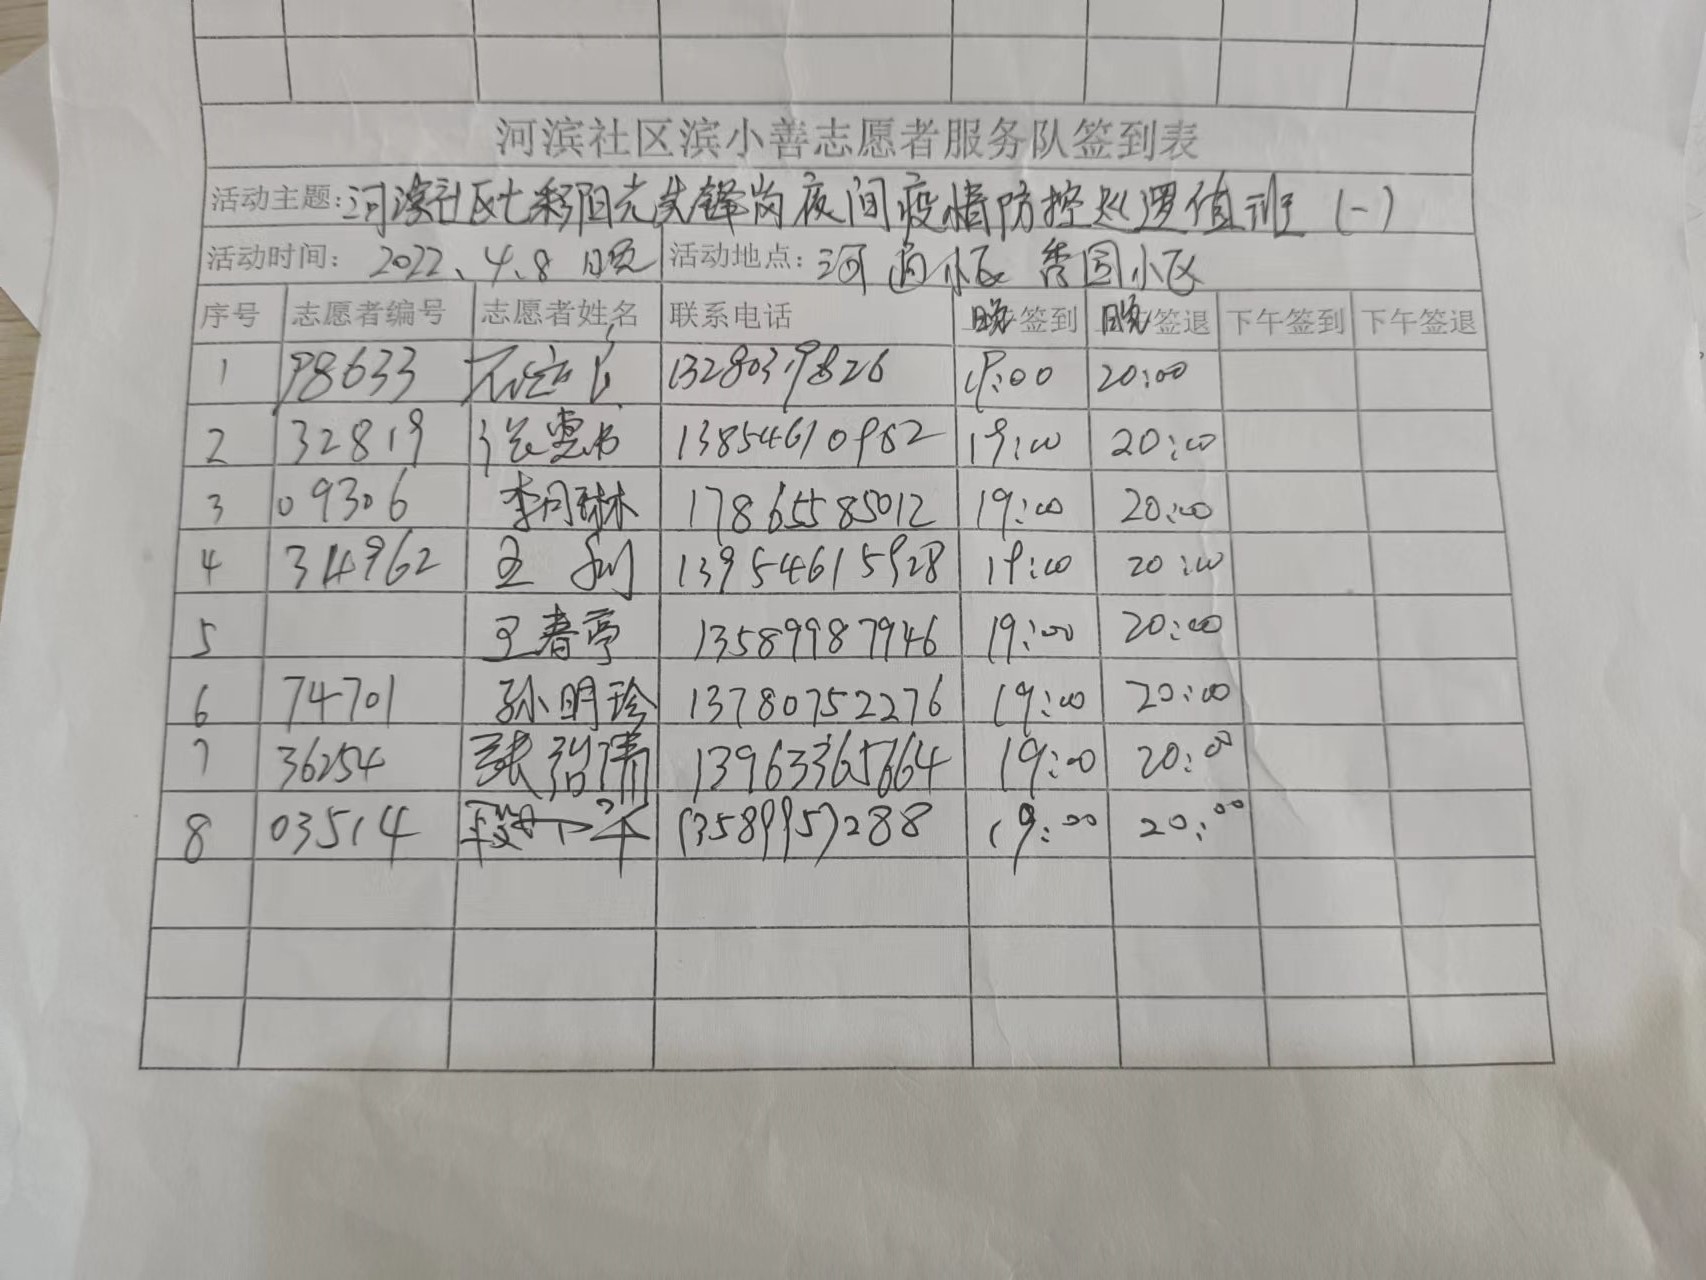 河滨社区滨小善志愿者服务队签到表
活动主题：河滨社区七彩阳光先锋岗夜间疫情防控巡逻值班（一）
活动时间： 2022、4、8 晚 活动地点：河通小区 秀园小区
序号 志愿者编号 志愿者姓名 联系电话 晚签到 晚签退 下午签到 下午签退
1 98633 13280379826 19:00 20:00
2 32819 13854610962 19:00 20:00
3 09306 李月琳 17865585012 19:00 20:00
4 314962 王 利 13954615928 19:00 20:00
5 王春亭 13589987946 19:00 20:00
6 74701 孙明珍 13780752276 19:00 20:00
7 36254 张绍清 19:00 20:00
8 03514 13589957288 19:00 20:00